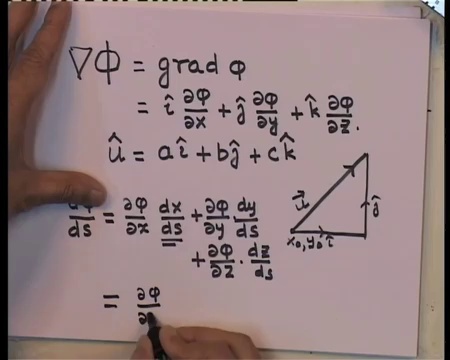 ∇φ = grad φ
= î ∂φ/∂x + ĵ ∂φ/∂y + k̂ ∂φ/∂z.
û = aî + bĵ + ck̂
dφ/ds = ∂φ/∂x dx/ds + ∂φ/∂y dy/ds
+ ∂φ/∂z · dz/ds
= ∂φ/∂
u⃗
ĵ
x₀, y₀ î